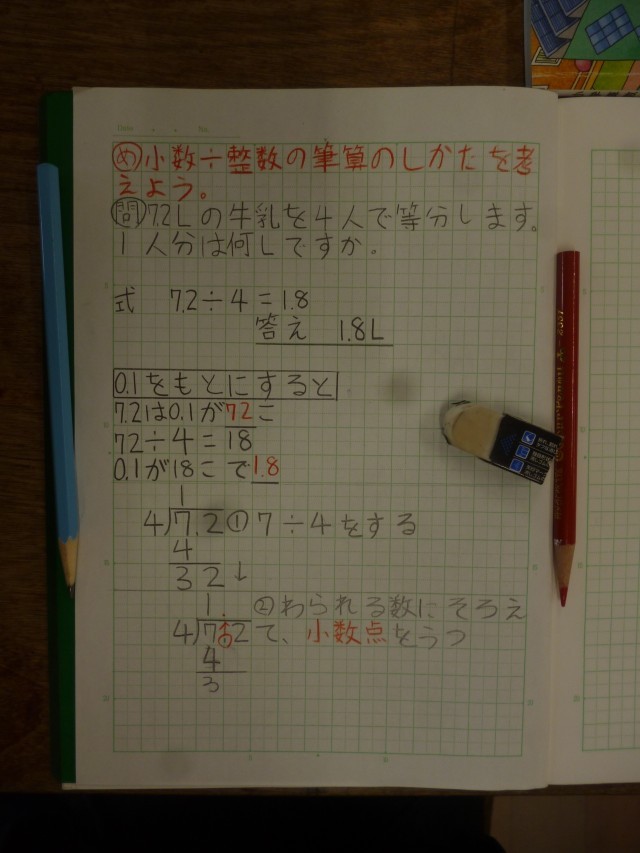 Date . . No.
め 小数÷整数の筆算のしかたを考
えよう。
問 7.2Lの牛乳を4人で等分します。
1人分は何Lですか。
式 7.2÷4=1.8
答え 1.8L
0.1をもとにすると
7.2は0.1が72こ
72÷4=18
0.1が18こで1.8
1
4)7.2 ① 7÷4をする
4
32↓
1. ②わられる数にそろえ
4)7.2 て、小数点をうつ
4
3